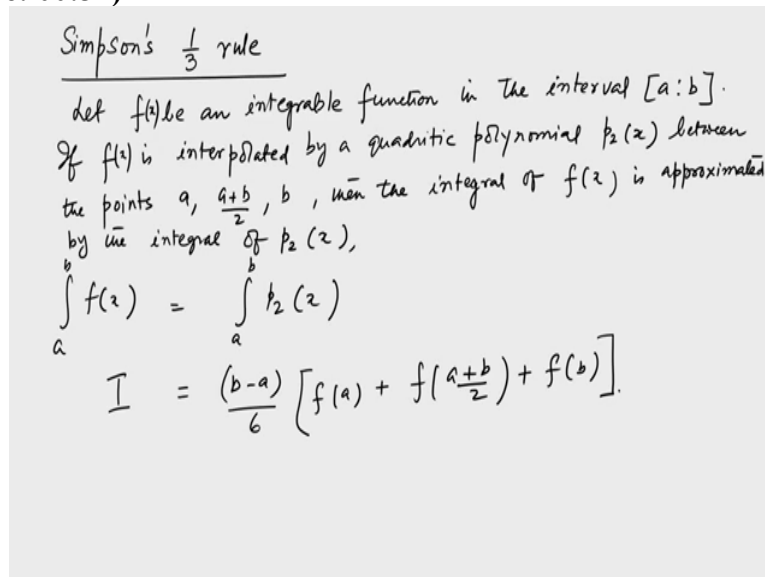 Simpson's 1/3 rule
Let f(x) be an integrable function in the interval [a:b].
If f(x) is interpolated by a quadritic polynomial p₂(x) between
the points a, (a+b)/2, b, then the integral of f(x) is approximated
by the integral of p₂(x),
∫ₐᵇ f(x) = ∫ₐᵇ p₂(x)
I = (b-a)/6 [f(a) + f((a+b)/2) + f(b)].